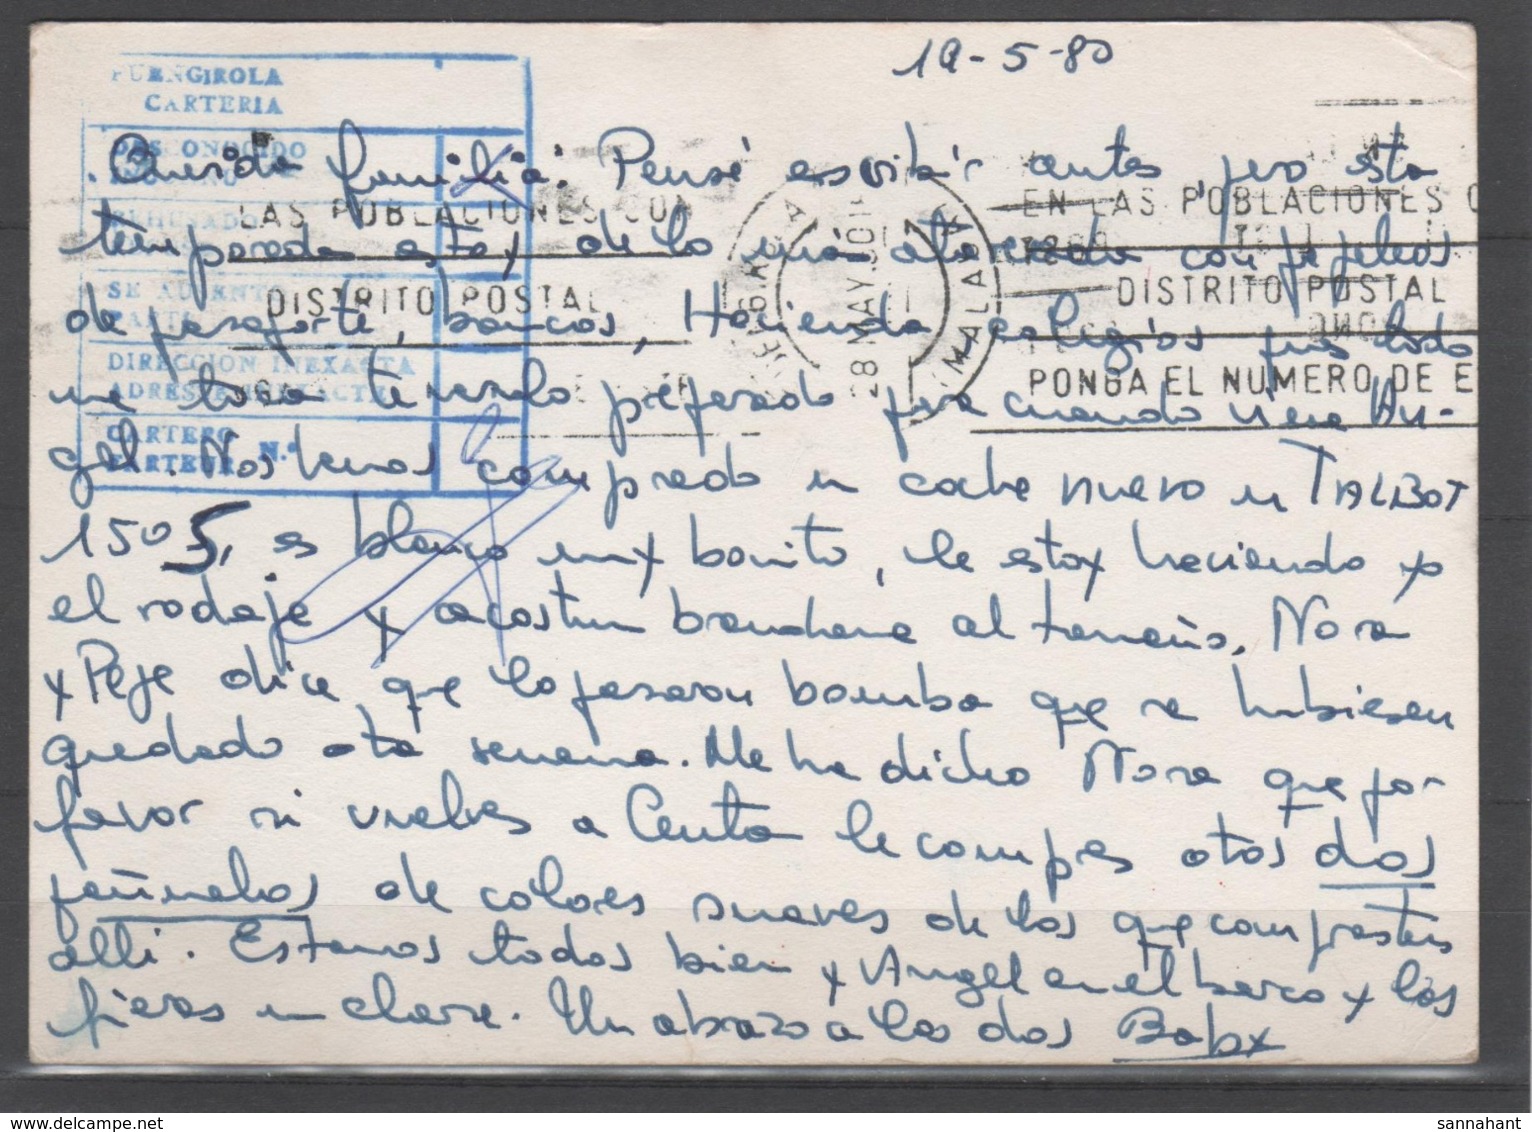 19-5-80
FUENGIROLA
CARTERIA
DESCONOCIDO
INCONNU
REHUSADO
SE AUSENTO
PARTI
DIRECCION INEXACTA
ADRESSE INEXACTE
CARTERO
FACTEUR N.º
LAS POBLACIONES CON
DISTRITO POSTAL
28 MAY
MALAGA
EN LAS POBLACIONES
DISTRITO POSTAL
PONGA EL NUMERO DE
Querida familia: Pensé escribir antes pero esta
temporada estoy de lo más atareada con papeleos
de pasaporte, bancos, Hacienda colegios pues todo
me toca tenerlo preparado para cuando viene An-
gel. Nos hemos comprado un coche nuevo un TALBOT
150 S, es blanco muy bonito, le estoy haciendo yo
el rodaje y acostumbrandome al tamaño. Nora
y Pepe dice que lo pasaron bomba que se hubiesen
quedado otra semana. Me ha dicho Nora que por
favor si vuelves a Ceuta le compres otros dos
pañuelos de colores suaves de los que comprasteis
alli. Estamos todos bien y Angel en el barco y los
fieras en clase. Un abrazo a los dos Baby
sannahant
delcampe.net